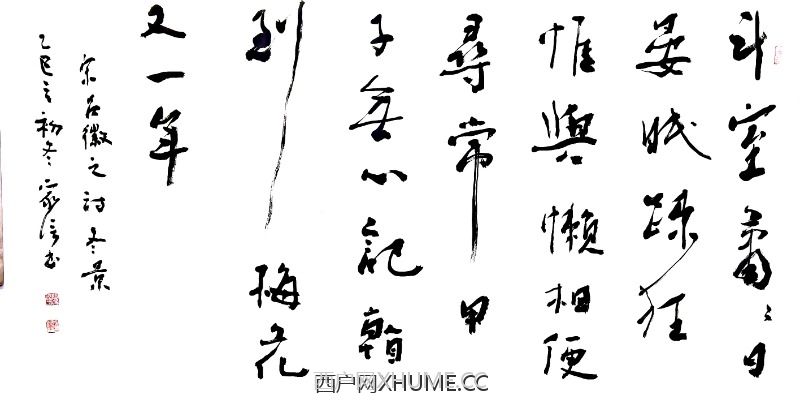 斗室蕭〻日
晏眠疎狂
惟與懶相便
尋常甲
子無心記看
到梅花
又一年
宋吕徽之詩冬景
乙巳之初冬家信书
西户网XHUME.CC